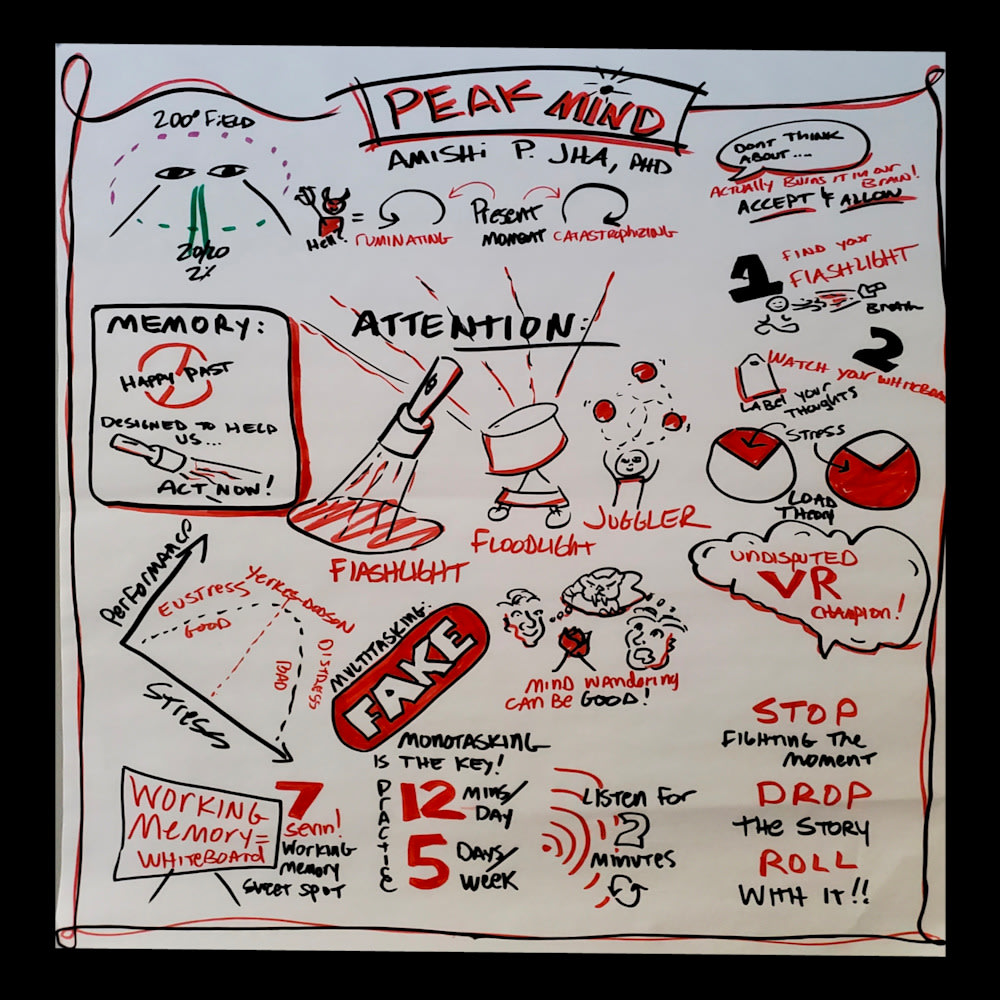 PEAK MIND
AMISHI P. JHA, PHD
200° FIELD
20/20
2%
Hell! =
RUMINATING
Present
MOMENT
CATASTROPHIZING
DONT THINK
ABOUT....
ACTUALLY BURNS IT IN OUR
BRAIN!
ACCEPT & ALLOW
1 FIND your
FLASHLIGHT
BREATH
2
WATCH your WHITEBOARD
LABEL YOUR
THOUGHTS
STRESS
LOAD
THEORY
MEMORY:
HAPPY PAST
DESIGNED TO HELP
US...
ACT NOW!
ATTENTION:
FLASHLIGHT
FLOODLIGHT
JUGGLER
UNDISPUTED
VR
CHAMPION!
Performance
EUSTRESS
GOOD
Yerkes-DODSON
DISTRESS
BAD
STRESS
MULTITASKING:
FAKE
MONOTASKING
IS THE KEY!
MIND WANDERING
CAN BE GOOD!
WORKING
Memory=
WHITEBOARD
7
WORKING
Memory
SWEET SPOT
PRACTICE
12 MINS/
DAY
5 DAYS/
WEEK
LISTEN FOR
2
MINUTES
STOP
FIGHTING The
MOMENT
DROP
THE STORY
ROLL
WITH IT!!